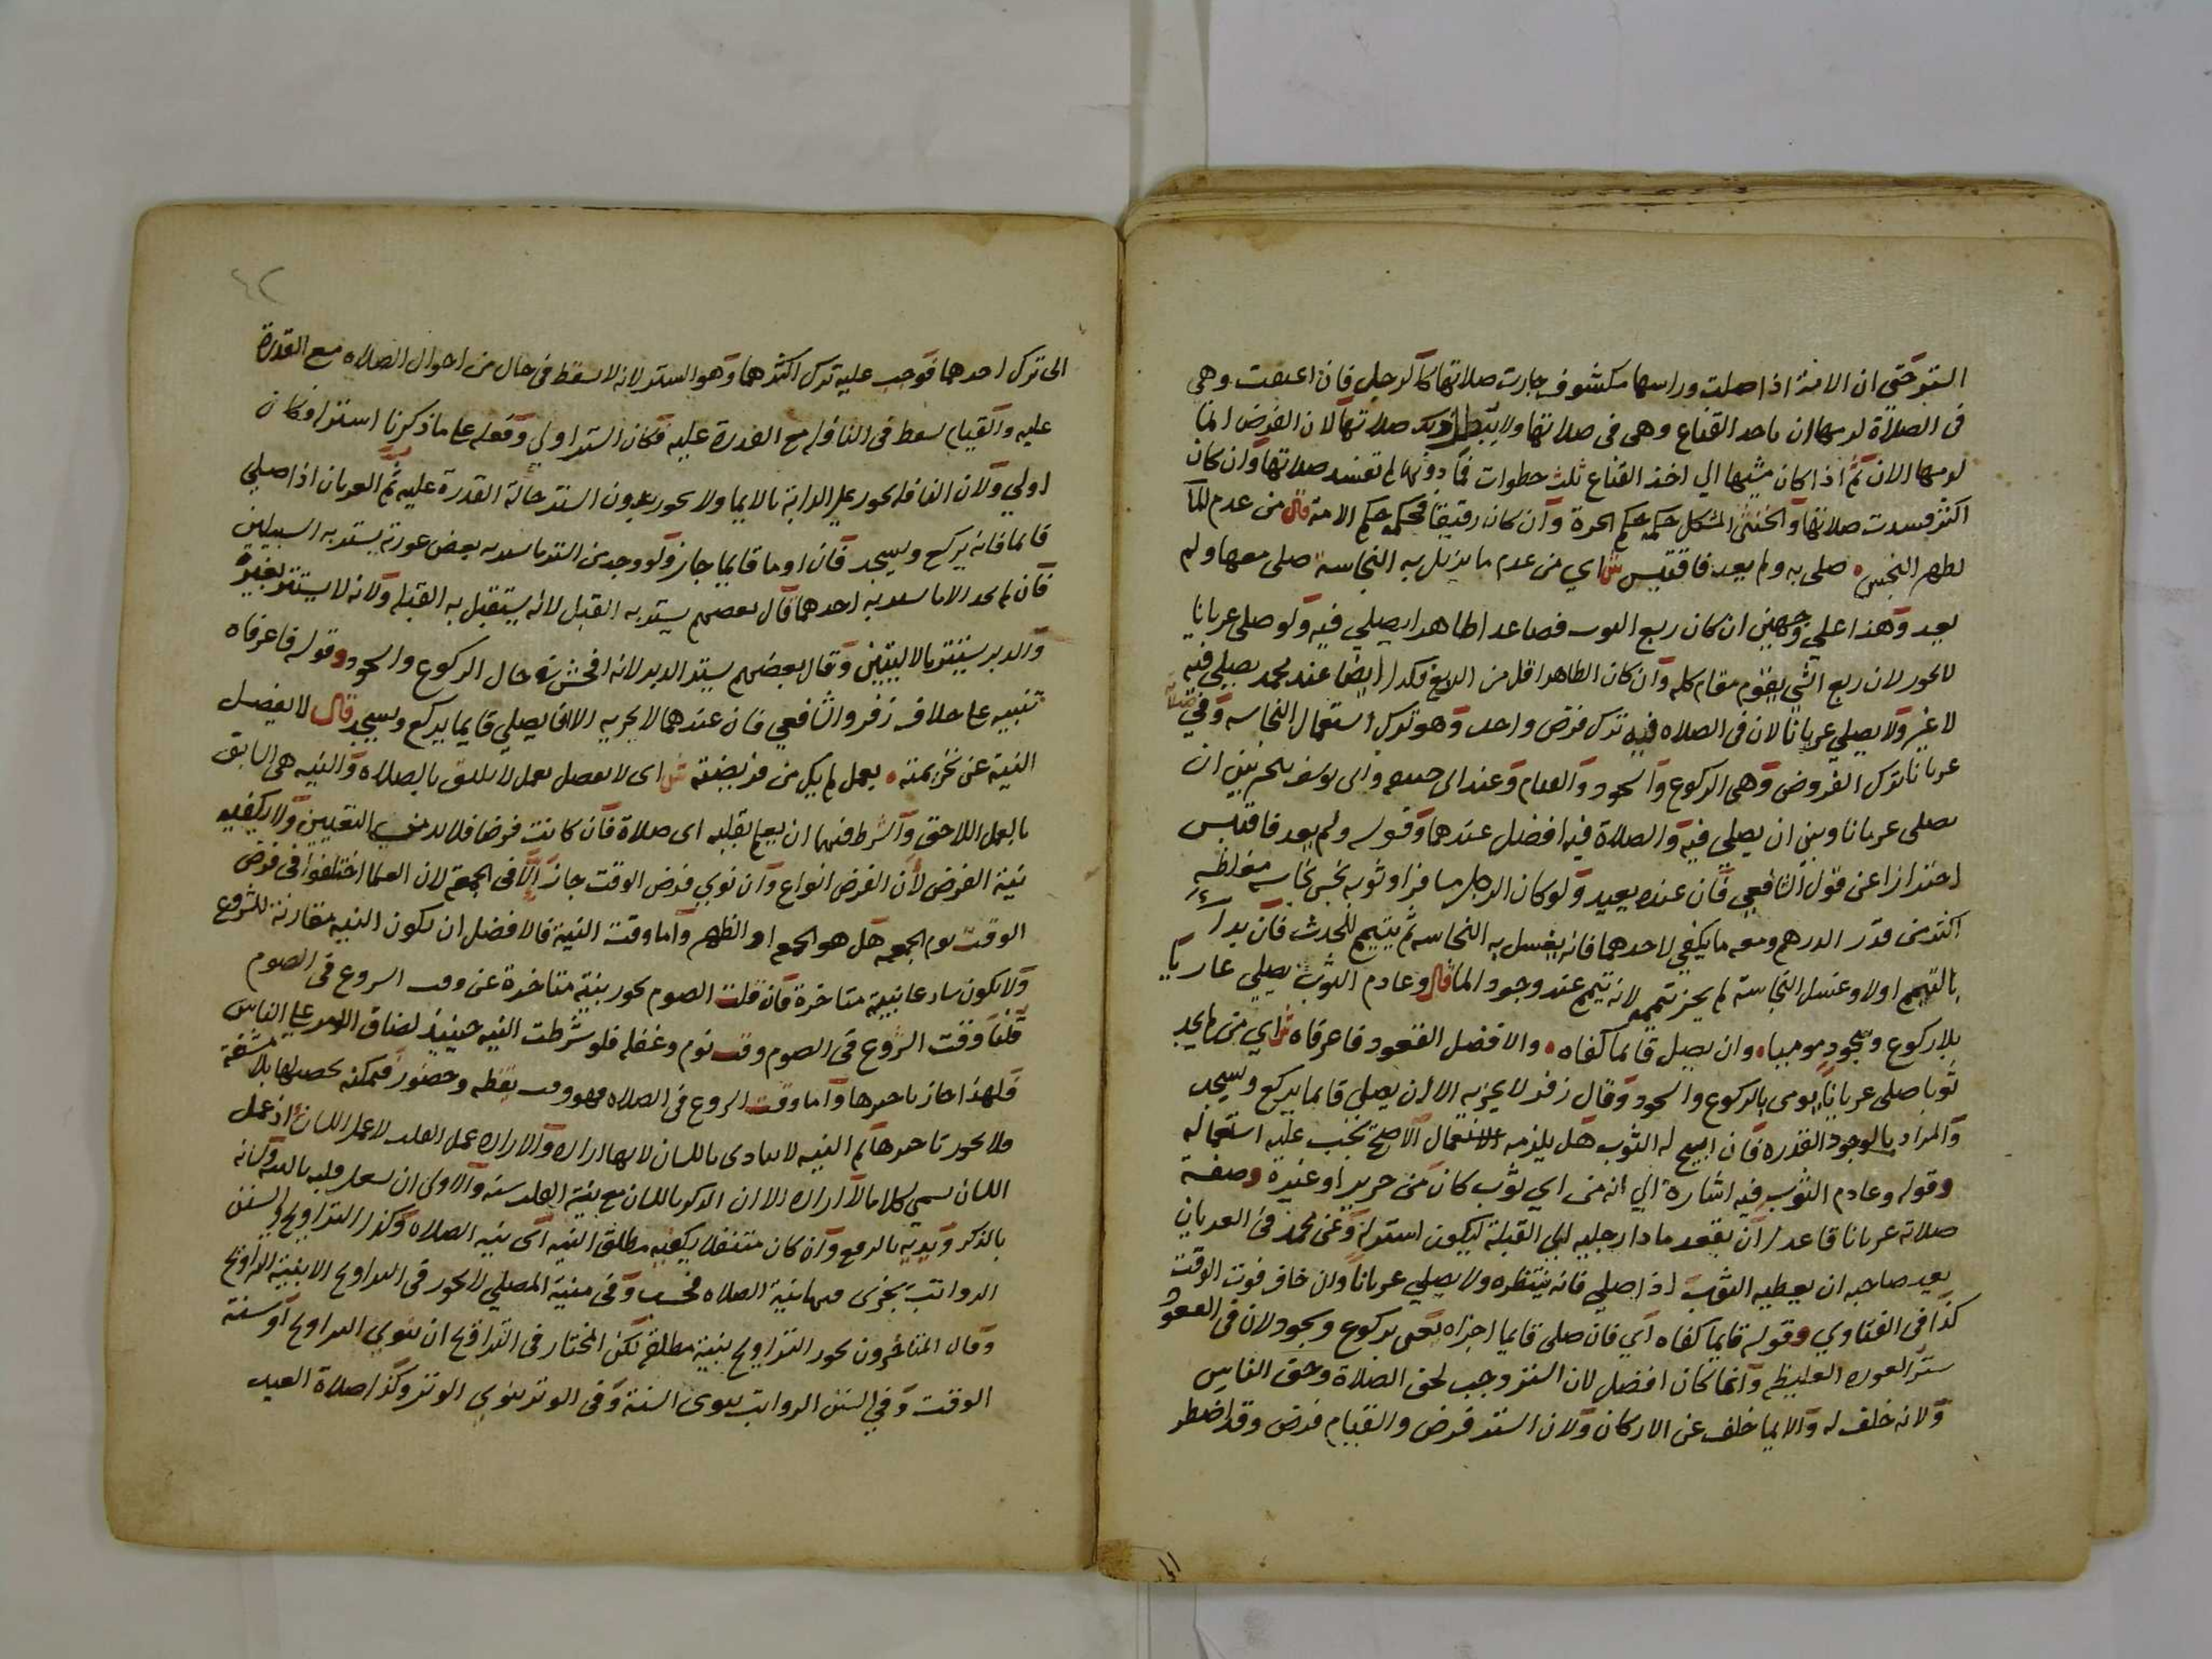 الستر حتى ان الامة اذا صلت وراسها مكشوف جازت صلاتها كالرجل فان اعتقت وهي
في الصلاة لزمها ان تاخذ القناع وهي في صلاتها ولا يبطل ذلك صلاتها لان الفرض انما
لزمها الان ثم اذا كان مشيها الي اخذ القناع ثلث خطوات فما دونها لم تفسد صلاتها وان كان
اكثر فسدت صلاتها والخنثى المشكل حكمه حكم الحرة وان كان رقيقا فحكمه حكم الامة قال من عدم الما
لطهر النجس صلى به ولم يعد فاقتبس ش اي من عدم ما يزيل به النجاسة صلى معها ولم
يعد وهذا على وجهين ان كان ربع الثوب فصاعدا طاهرا يصلي فيه ولو صلى عريانا
لا يجوز لان ربع الشي يقوم مقام كله وان كان الطاهر اقل من الربع فكذا ايضا عند محمد يصلي فيه
لا غير ولا يصلي عريانا لان في الصلاه فيه ترك فرض واحد وهو ترك استعمال النجاسه وفي صلاته
عريانا ترك الفروض وهي الركوع والسجود والقيام وعند ابي حنيفه وابي يوسف يتخير بين ان
يصلى عريانا وبين ان يصلي فيه والصلاة فيه افضل عندهما وقوله ولم يعد فاقتبس
احترازا عن قول الشافعي فان عنده يعيد ولو كان الرجل مسافرا وثوبه نجس نجاسه مغلظه
اكثر من قدر الدرهم ومعه ما يكفي لاحدهما فانه يغسل به النجاسه ثم يتيمم للحدث فان بدا
بالتيمم اولا وغسل النجاسة لم يجز تيممه لانه تيمم عند وجود الما قال وعادم الثوب يصلي عاريا
بلا ركوع وسجود موميا وان يصل قائما كفاه والافضل القعود فاعرفاه ش اي من لم يجد
ثوبا صلى عريانا يومى بالركوع والسجود وقال زفر لا يجزيه الا ان يصلي قائما يركع ويسجد
والمراد بالوجود القدره فان ابيح له الثوب هل يلزمه الاستعمال الاصح يجب عليه استعماله
وقوله وعادم الثوب فيه اشارة الي انه من اي ثوب كان من حرير او غيره وصفة
صلاته عريانا قاعدا ان يقعد مادا رجليه الي القبلة ليكون استر له وعن محمد في العريان
يعيد صاحبه ان يعطيه الثوب اذا صلي فانه ينتظره ولا يصلي عريانا وان خاف فوت الوقت
كذا في الفتاوي وقوله قايما كفاه اي فان صلى قايما اجزاه يعنى بركوع وسجود لان في القعود
ستر العوره الغليظه وانما كان افضل لان الستر وجب لحق الصلاة وحق الناس
ولانه خلف له والايما خلف عن الاركان ولان الستر فرض والقيام فرض وقد اضطر
الى
٤٢
الى ترك احدهما فوجب عليه ترك اكثرهما وهو الستر لانه لا يسقط في حال من احوال الصلاه مع القدرة
عليه والقيام يسقط في النافله مع القدرة عليه فكان الستر اولي وفعله على ما ذكرنا استر فكان
اولي ولان النافله يجوز على الدابة بالايما ولا يجوز بدون الستر حالة القدرة عليه ثم العريان اذا صلي
قائما فانه يركع ويسجد فان اوما قايما جاز ولو وجد من الستر ما يستر به بعض عورته يستر به السبيلين
فان لم يجد الا ما يستر به احدهما قال بعضهم يستر به القبل لانه يستقبل به القبله ولانه لا يستتر بغيره
والدبر يستتر بالاليتين وقال بعضهم يستر الدبر لانه افحش في حال الركوع والسجود وقوله فاعرفاه
تنبيه على خلاف زفر والشافعي فان عندهما لا يجزيه الا ان يصلي قايما يركع ويسجد قال لا يفصل
النية عن تحريمته بعمل لم يكن من فريضته ش اى لا يفصل بعمل لا يليق بالصلاه والنيه هي السابق
بالعمل اللاحق والشرط فيها ان يعلم بقلبه اى صلاة فان كانت فرضا فلا بد من التعيين ولا يكفيه
نية الفرض لان الفرض انواع وان نوي فرض الوقت جاز الا في الجمعة لان العلما اختلفوا في فرض
الوقت يوم الجمعه هل هو الجمعه او الظهر واما وقت النية فالافضل ان تكون النيه مقارنة للشروع
ولا يكون شارعا بنية متاخرة فان قلت الصوم يجوز بنية متاخرة عن وقت الشروع في الصوم
قلنا وقت الشروع في الصوم وقت نوم وغفله فلو شرطت النيه حينئذ لضاق الامر على الناس
فلهذا جاز تاخيرها واما وقت الشروع في الصلاه فهو وقت يقظه وحضور فيمكنه تحصيلها بلا مشقة
فلا يجوز تاخيرها ثم النيه لا تتادى باللسان لانها اراده والاراده عمل القلب لا عمل اللسان اذ عمل
اللسان يسمى كلاما لا اراده الا ان الذكر باللسان مع نية القلب سنه والاولى ان يشغل قلبه بالنيه ولسانه
بالذكر ويديه بالرفع وان كان متنفلا يكفيه مطلق النيه اى نيه الصلاه وكذا التراويح والسنن
الرواتب يجزى فيها نية الصلاه فحسب وفي منية المصلي لا يجوز في التراويح الا بنية التراويح
وقال المتاخرون يجوز التراويح بنية مطلقة لكن المختار في التراويح ان ينوي التراويح او سنة
الوقت وفي السنن الرواتب ينوى السنة وفي الوتر ينوي الوتر وكذا صلاة العيد